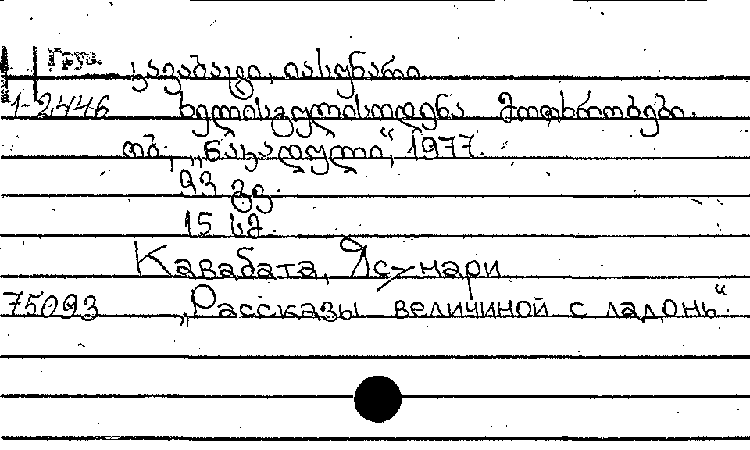 Груз.
კავაბატი, იასუნარი
1-2446 ხელისგულისოდენა მოთხრობები.
თბ., „ნაკადული“, 1977.
93 გვ.
15 სმ.
Кавабата, Ясунари
75093 „Рассказы величиной с ладонь“.